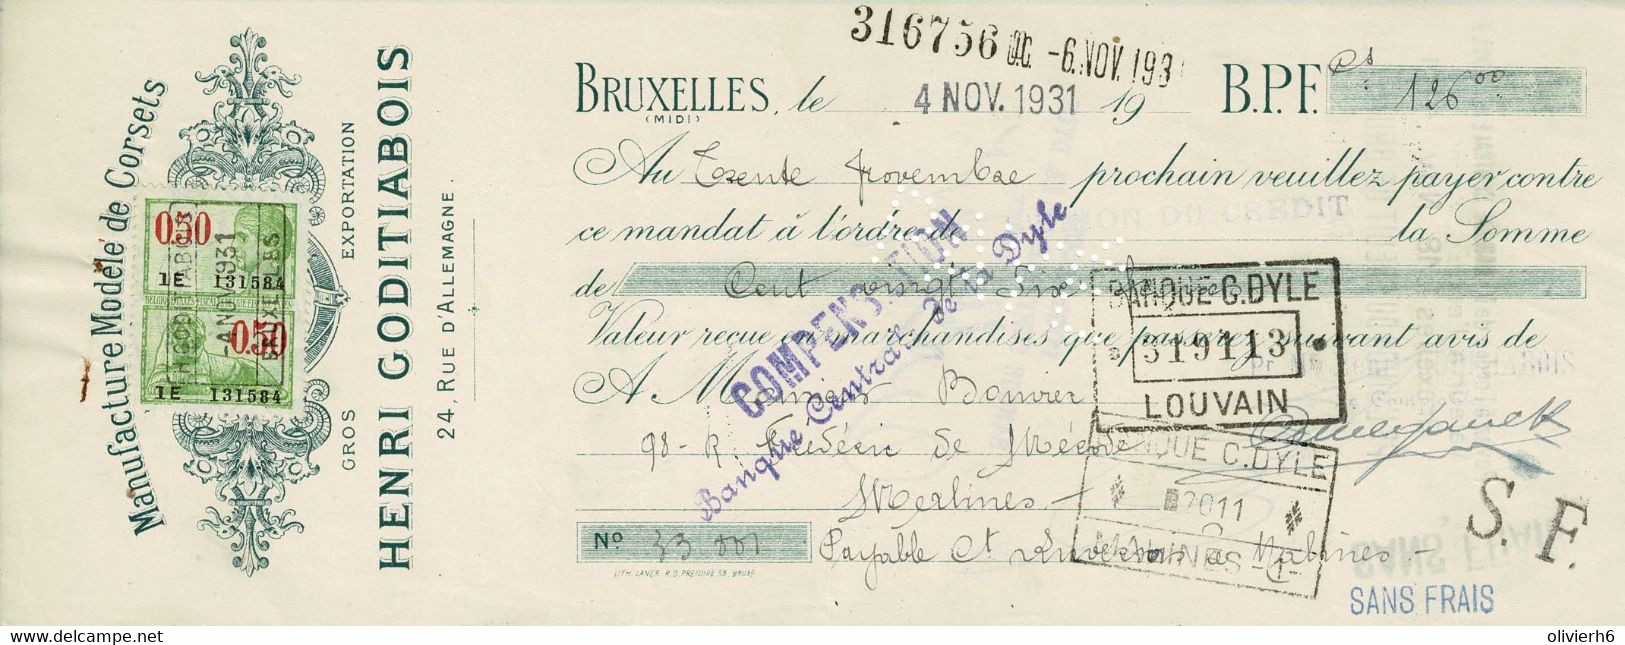 Manufacture Modèle de Corsets
GROS EXPORTATION
HENRI GODITIABOIS
24, RUE D'ALLEMAGNE
0.50
1E 131584
0.50
1E 131584
H. GODITIABOIS
-4 NOV 1931
BRUXELLES
316756 -6.NOV.193
BRUXELLES, le 4 NOV. 1931 19 B.P.F. 126 00
(MIDI)
Au Trente Novembre prochain veuillez payer contre
ce mandat à l'ordre de la Somme
UNION DU CREDIT
de Cent vingt Six
Valeur reçue en marchandises que passerez suivant avis de
A M
98 - R. Frédéric de Mérode
Malines
COMPENSATION
Banque Centrale de la Dyle
BANQUE C. DYLE
319113
LOUVAIN
BANQUE C. DYLE
MALINES -1-
No
Payable à Malines -
LITH. LANER R.D. PRÉTOIRE 58. BRUXE
S. F.
SANS FRAIS
www.delcampe.net
olivierh6